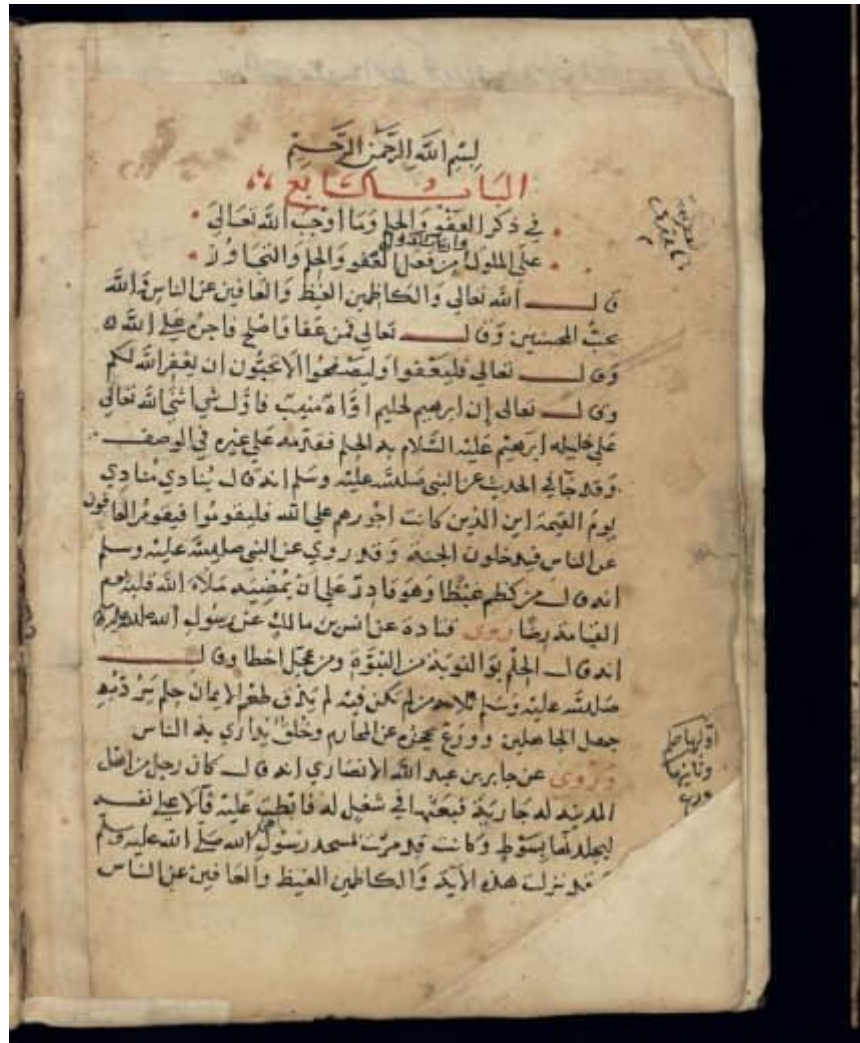 بِسْمِ اللَّهِ الرَّحْمَنِ الرَّحِيمِ
الباب السابع
في ذكر العفو والحلم وما اوجب الله تعالى
على الملوك من فعل العفو والحلم والتجاوز
قال الله تعالى والكاظمين الغيظ والعافين عن الناس والله
يحب المحسنين وقال تعالى فمن عفا واصلح فاجره على الله
وقال تعالى فليعفوا وليصفحوا الا تحبون ان يغفر الله لكم
وقال تعالى إن ابرهيم لحليم اواه منيب فاول شي اثنى الله تعالى
على خليله ابرهيم عليه السلام به الحلم فقدمه على غيره في الوصف
وقد جا في الحديث عن النبي صلى الله عليه وسلم انه قال ينادي منادي
يوم القيمة اين الذين كانت اجورهم على الله فليقوموا فيقوم العافون
عن الناس فيدخلون الجنة وقد روي عن النبي صلى الله عليه وسلم
انه قال من كظم غيظا وهو قادر على ان يمضيه ملاه الله قلبه يوم
القيامة رضا روى قتادة عن انس بن مالك عن رسول الله
انه قال الحلم والتوبة من النبوة ومن عجل اخطا وقال
صلى الله عليه وسلم ثلاث من لم تكن فيه لم يذق طعم الايمان حلم يرد به
جهل الجاهلين وورع يحجزه عن المحارم وخلق يداري به الناس
وروى عن جابر بن عبد الله الانصاري انه قال كان رجل من اهل
المدينه له جارية فبعثها في شغل له فابطت عليه فآلا على نفسه
ليجلدنها بسوط وكانت قد مرت بمسجد رسول الله صلى الله عليه وسلم
قد نزلت هذه الآية والكاظمين الغيظ والعافين عن الناس
اولها حلم
وثانيها
ورع